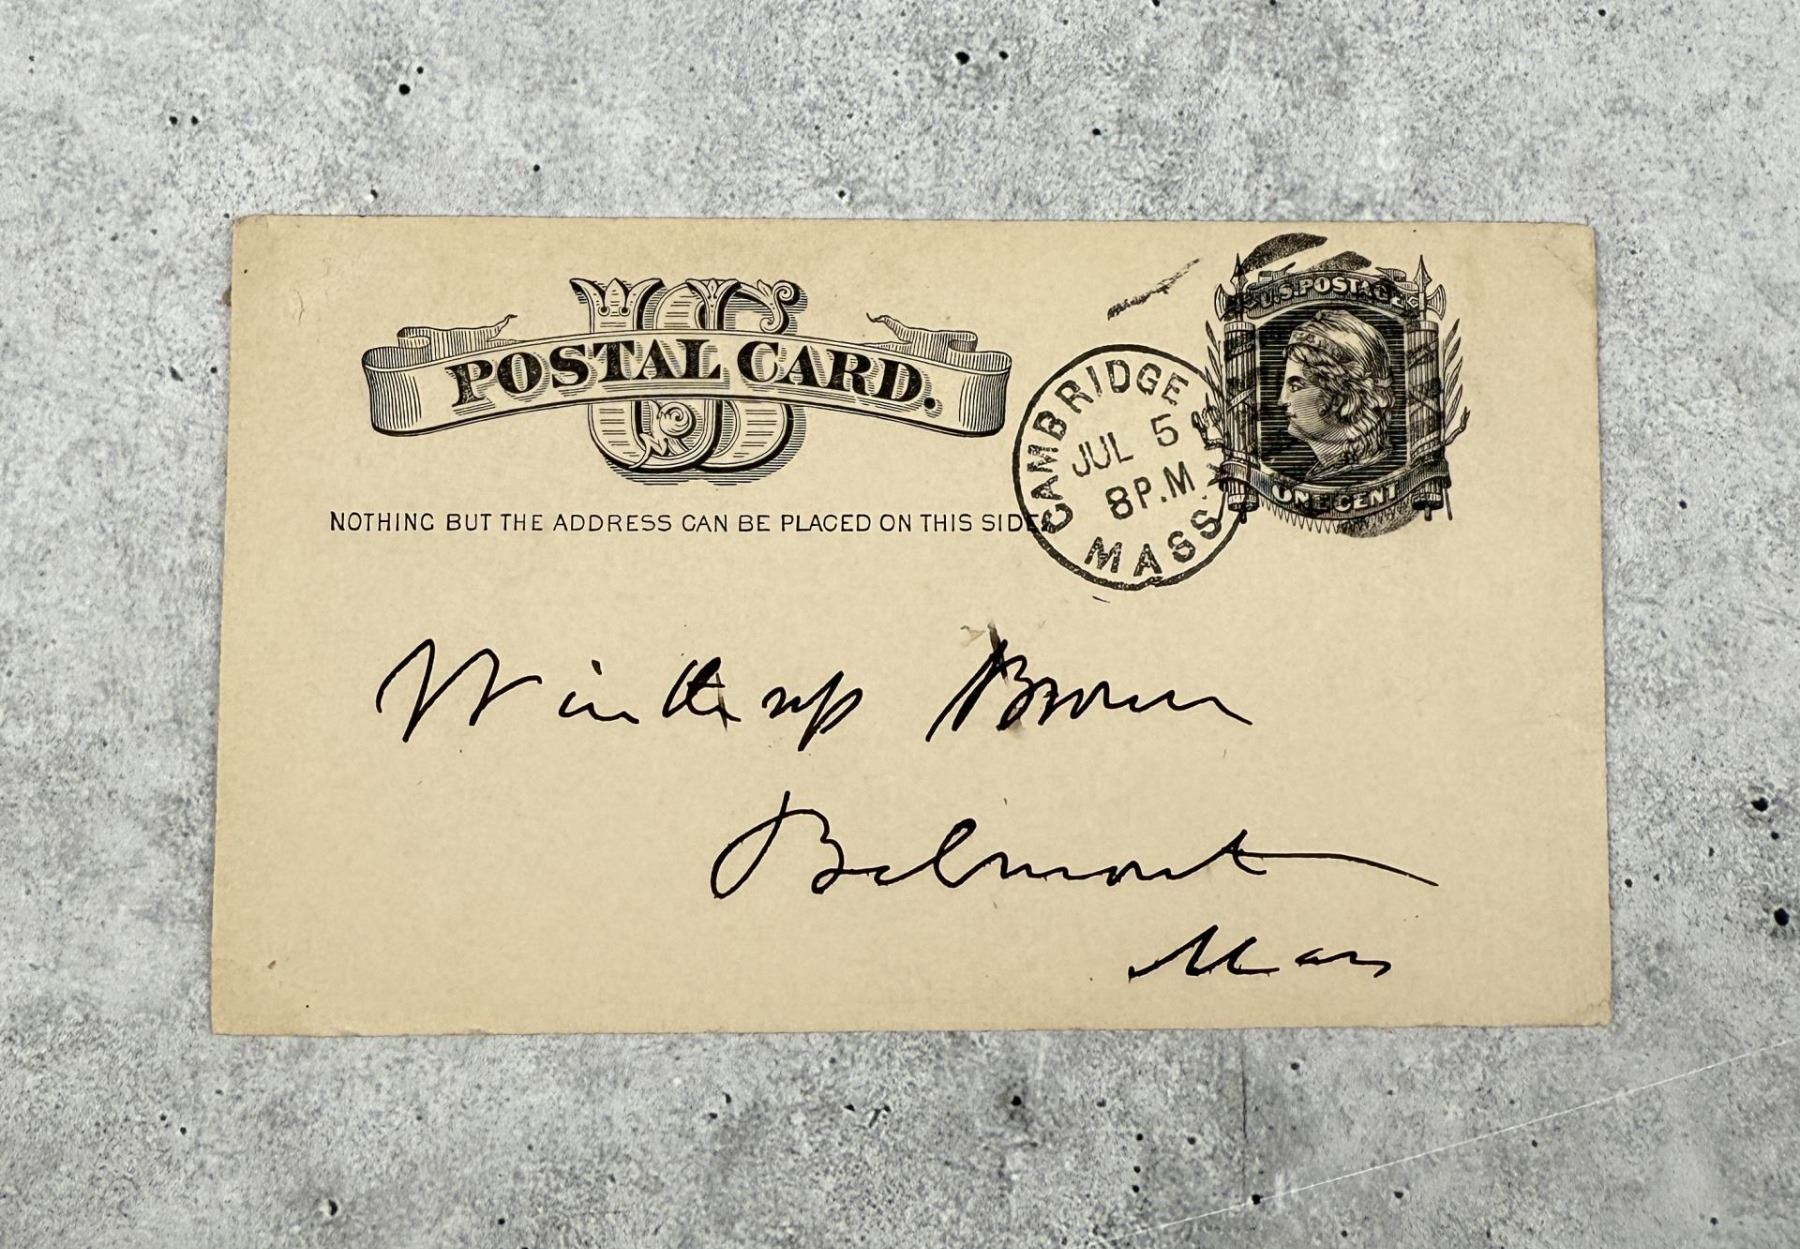 US
POSTAL CARD.
NOTHING BUT THE ADDRESS CAN BE PLACED ON THIS SIDE.
CAMBRIDGE
JUL 5
8 P.M.
MASS.
U.S. POSTAGE
ONE CENT
Winthrop Brown
Belmont
Mass